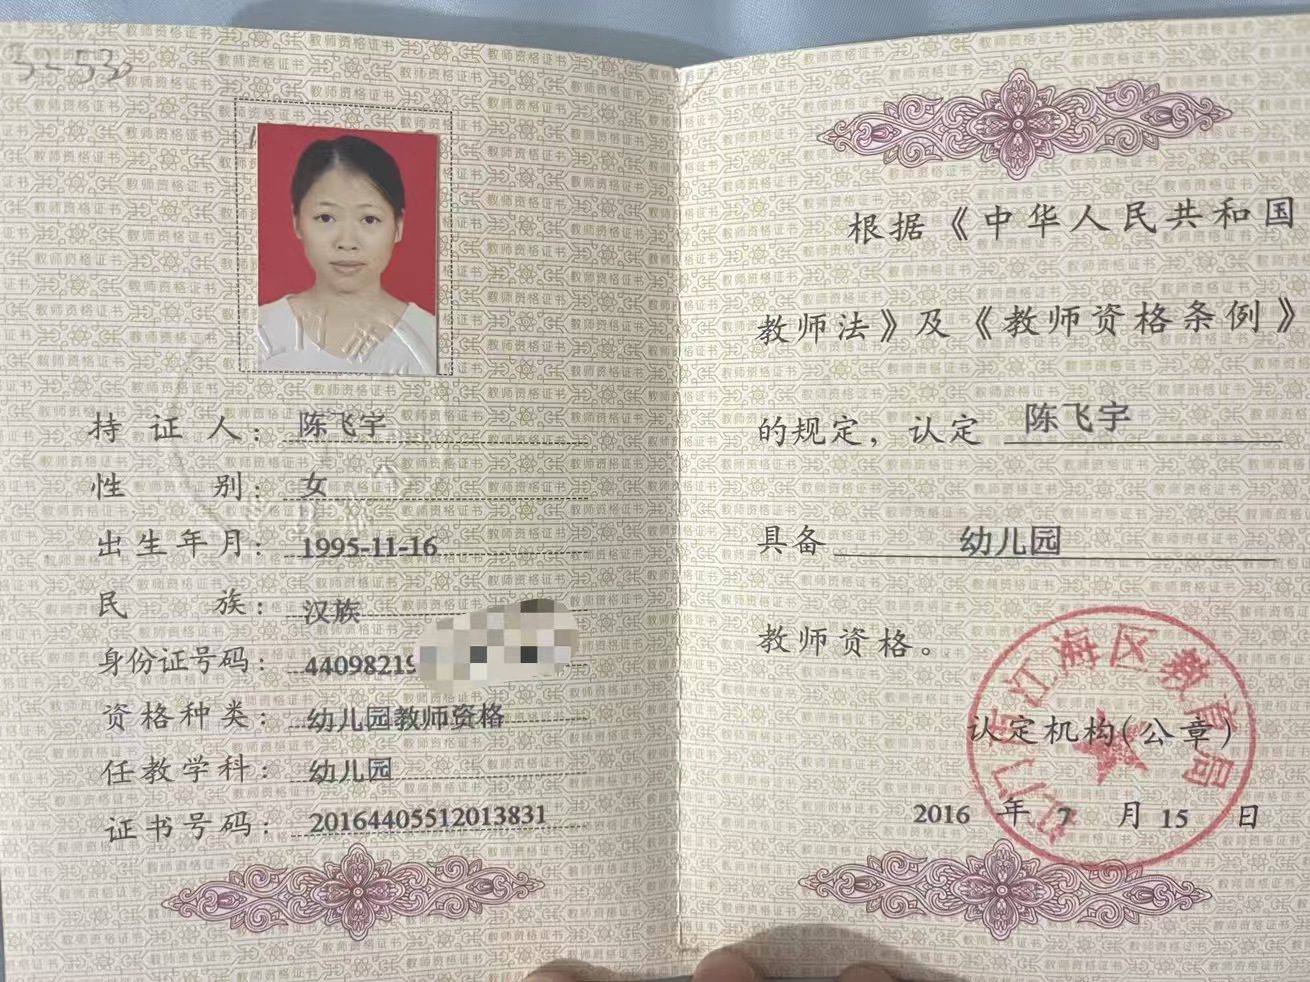 3-530
持证人：陈飞宇
性别：女
出生年月：1995-11-16
民族：汉族
身份证号码：44098219
资格种类：幼儿园教师资格
任教学科：幼儿园
证书号码：20164405512013831
根据《中华人民共和国
教师法》及《教师资格条例》
的规定，认定 陈飞宇
具备 幼儿园
教师资格。
江门市江海区教育局
认定机构(公章)
2016 年 7 月 15 日